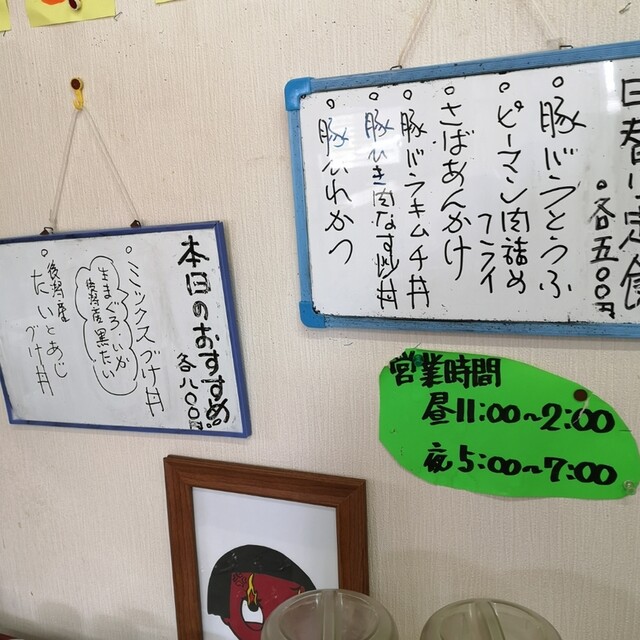 日替り定食
・各五〇〇円
豚バラとうふ
ピーマン肉詰め
フライ
さばあんかけ
豚バラキムチ丼
豚ひき肉なす炒丼
豚ひれかつ
本日のおすすめ
各八〇〇円
ミックスづけ丼
生まぐろ、いか
佐渡産黒たい
佐渡産
たいとあじ
づけ丼
営業時間
昼11:00~2:00
夜5:00~7:00